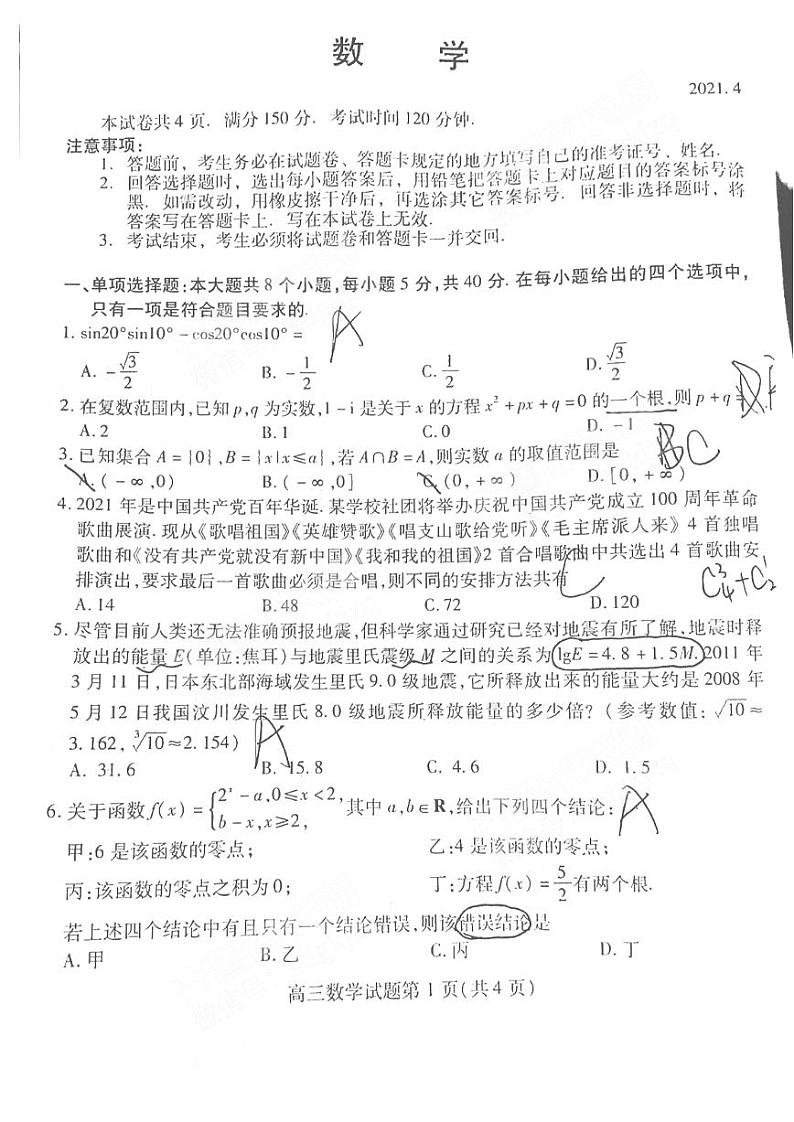 数 学
2021.4
本试卷共4页. 满分150分. 考试时间120分钟.
注意事项:
1. 答题前，考生务必在试题卷、答题卡规定的地方填写自己的准考证号、姓名.
2. 回答选择题时，选出每小题答案后，用铅笔把答题卡上对应题目的答案标号涂
黑. 如需改动，用橡皮擦干净后，再选涂其它答案标号. 回答非选择题时，将
答案写在答题卡上. 写在本试卷上无效.
3. 考试结束，考生必须将试题卷和答题卡一并交回.
一、单项选择题:本大题共8个小题,每小题5分,共40分. 在每小题给出的四个选项中,
只有一项是符合题目要求的.
1. sin20°sin10° - cos20°cos10° = A
A. -√3/2 B. -1/2 C. 1/2 D. √3/2
2. 在复数范围内,已知p,q为实数,1-i是关于x的方程x²+px+q=0的一个根,则p+q=
A. 2 B. 1 C. 0 D. -1
3. 已知集合A={0},B={x|x≤a},若A∩B=A,则实数a的取值范围是 BC
A. (-∞,0) B. (-∞,0] C. (0,+∞) D. [0,+∞)
4. 2021年是中国共产党百年华诞. 某学校社团将举办庆祝中国共产党成立100周年革命
歌曲展演. 现从《歌唱祖国》《英雄赞歌》《唱支山歌给党听》《毛主席派人来》4首独唱
歌曲和《没有共产党就没有新中国》《我和我的祖国》2首合唱歌曲中共选出4首歌曲安
排演出,要求最后一首歌曲必须是合唱,则不同的安排方法共有 C C₄³+C₂¹
A. 14 B. 48 C. 72 D. 120
5. 尽管目前人类还无法准确预报地震,但科学家通过研究已经对地震有所了解,地震时释
放出的能量E(单位:焦耳)与地震里氏震级M之间的关系为lgE=4.8+1.5M. 2011年
3月11日,日本东北部海域发生里氏9.0级地震,它所释放出来的能量大约是2008年
5月12日我国汶川发生里氏8.0级地震所释放能量的多少倍? (参考数值: √10≈
3.162, ∛10≈2.154) A
A. 31.6 B. 15.8 C. 4.6 D. 1.5
6. 关于函数f(x)={2ˣ-a,0≤x<2, b-x,x≥2, 其中a,b∈R,给出下列四个结论: A
甲:6是该函数的零点; 乙:4是该函数的零点;
丙:该函数的零点之积为0; 丁:方程f(x)=5/2有两个根.
若上述四个结论中有且只有一个结论错误,则该错误结论是
A. 甲 B. 乙 C. 丙 D. 丁
高三数学试题第1页(共4页)